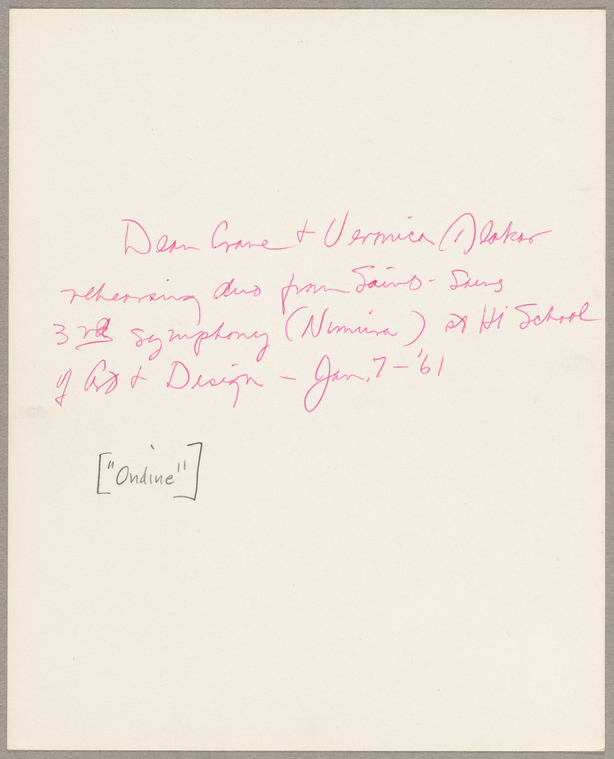 Dean Crane + Veronica Mlakar
rehearsing duo from Saint-Saens
3rd symphony (Nimura) at Hi School
of Art + Design - Jan. 7 - '61
["Ondine"]